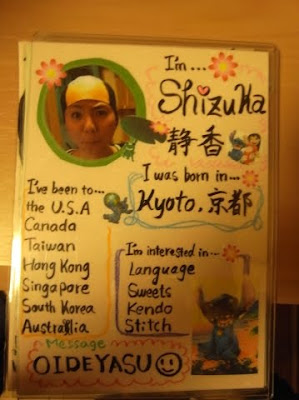 I'm...
Shizuka
静香
I was born in...
Kyoto, 京都
I've been to...
the U.S.A
Canada
Taiwan
Hong Kong
Singapore
South Korea
Australia
I'm interested in...
Language
Sweets
Kendo
Stitch
Message
OIDEYASU